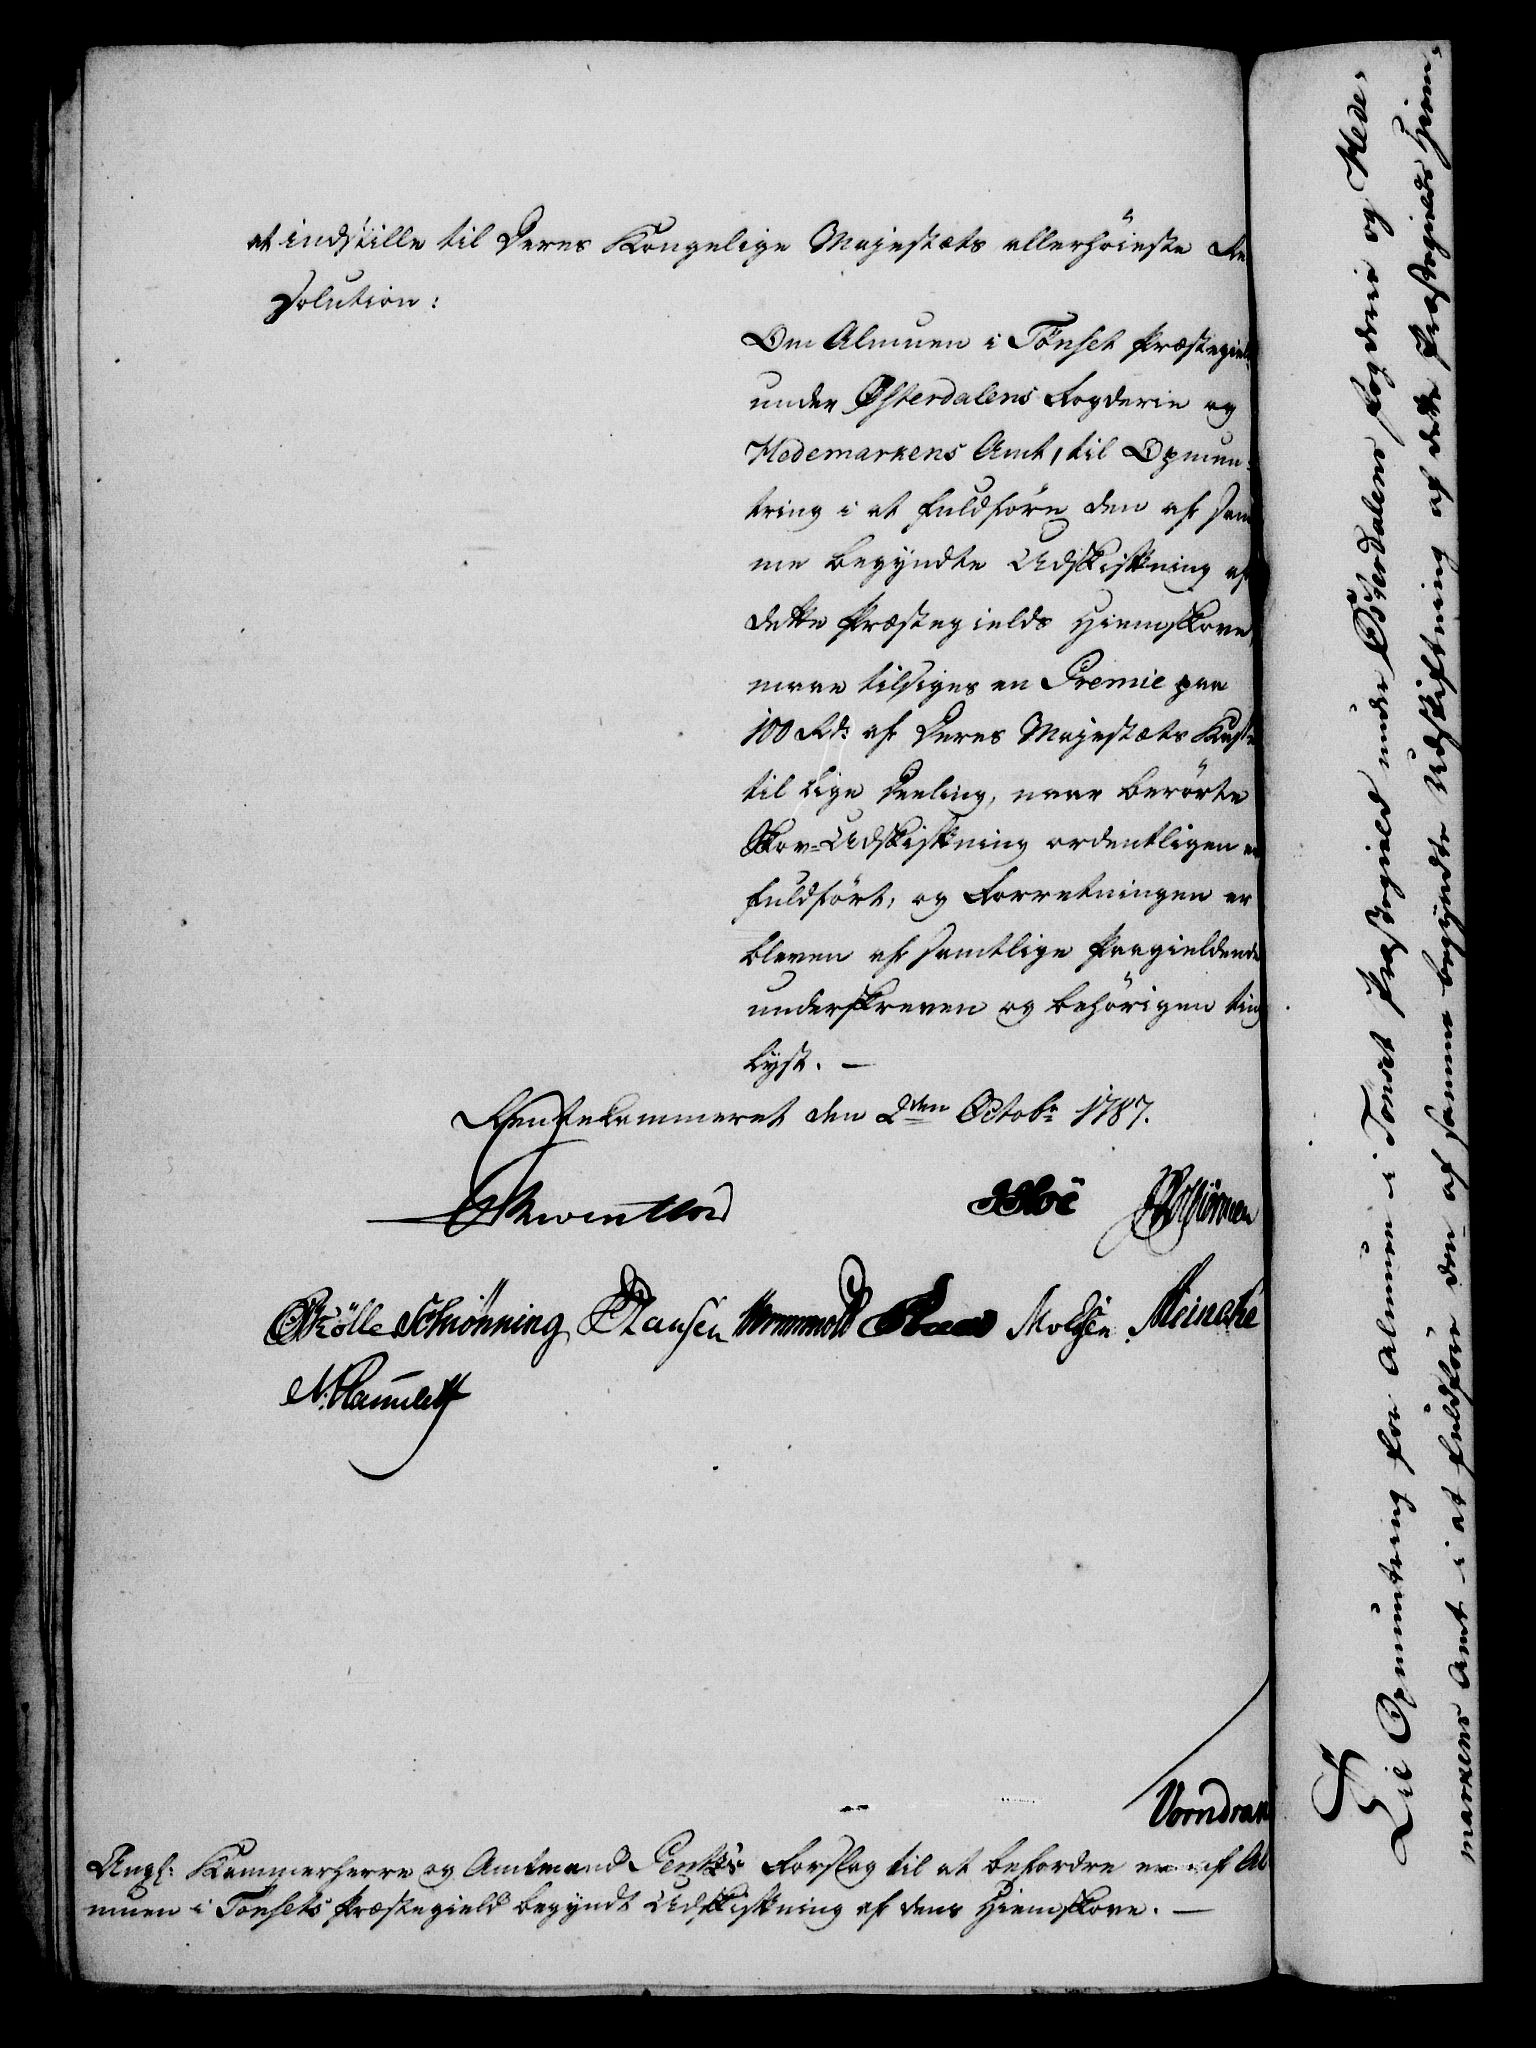 at indstille til Deres Kongelige Majestæts allerhöieste Re
solution:
Om Almuen i Tönset Præstegield
under Østerdalens Fogderie og
Hedemarkens Amt, til Opmun-
tring i at fuldföre den af sam
me begyndte Udskiftning af
dette Præstegields Hiemskove,
maae tilsiges en Premie paa
100 Rd: af Deres Majestæts Kasse
til lige Deeling, naar berörte
Skov-Udskiftning ordentligen er
fuldfört, og Forretningen er
bleven af samtlige Paagieldende
underskreven og behörigen ting
lyst. —
Rentekammeret den 2den Octobr 1787.
Schiönning Hansen Wormwold Moldsen Meincke
Vorndran
Angl: Kammerherre og Amtmand Forslag til at befordre en af Al
muen i Tönsets Præstegield begyndt Udskiftning af dens Hiemskove. —
Til Opmuntring for Almuen i Tönset Præstegield under Østerdalens Fogderie og Hede-
markens Amt i at fuldföre den af samme begyndte Udskiftning af dette Præstegields Hiem-